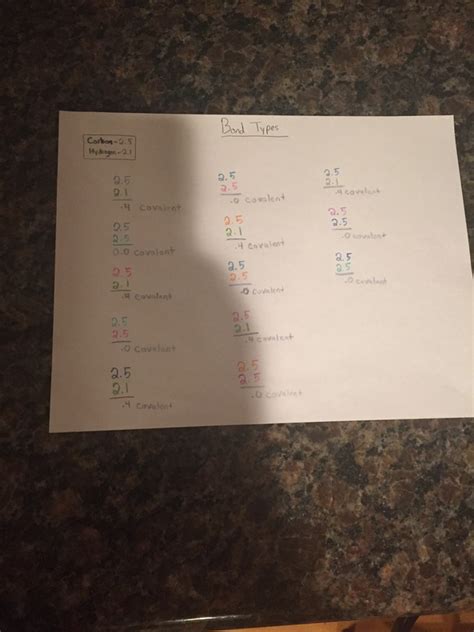 Bond Types
Carbon-2.5
Hydrogen-2.1
2.5
2.1
.4 covalent
2.5
2.5
0.0 covalent
2.5
2.1
.4 covalent
2.5
2.5
.0 covalent
2.5
2.1
.4 covalent
2.5
2.5
.0 covalent
2.5
2.1
.4 covalent
2.5
2.5
.0 covalent
2.5
2.1
.4 covalent
2.5
2.5
.0 covalent
2.5
2.1
.4 covalent
2.5
2.5
.0 covalent
2.5
2.5
.0 covalent